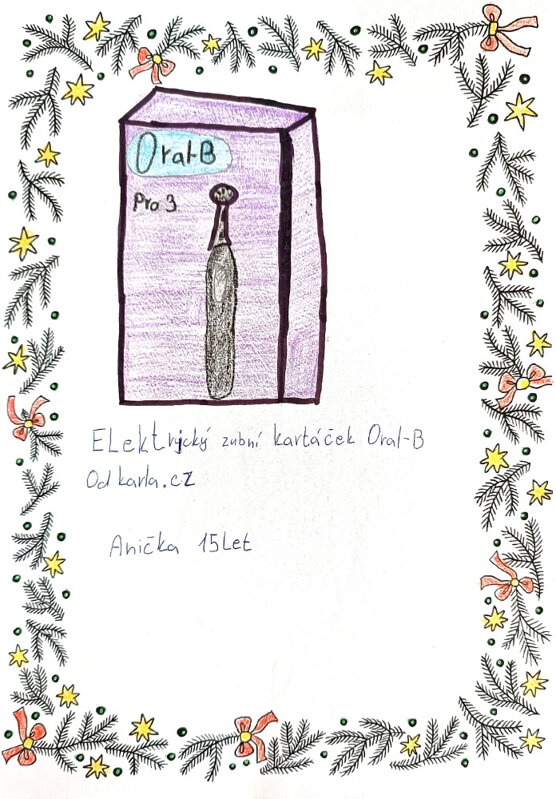 Oral-B
Pro 3
Elektrický zubní kartáček Oral-B
Od karla.cz
Anička 15 Let